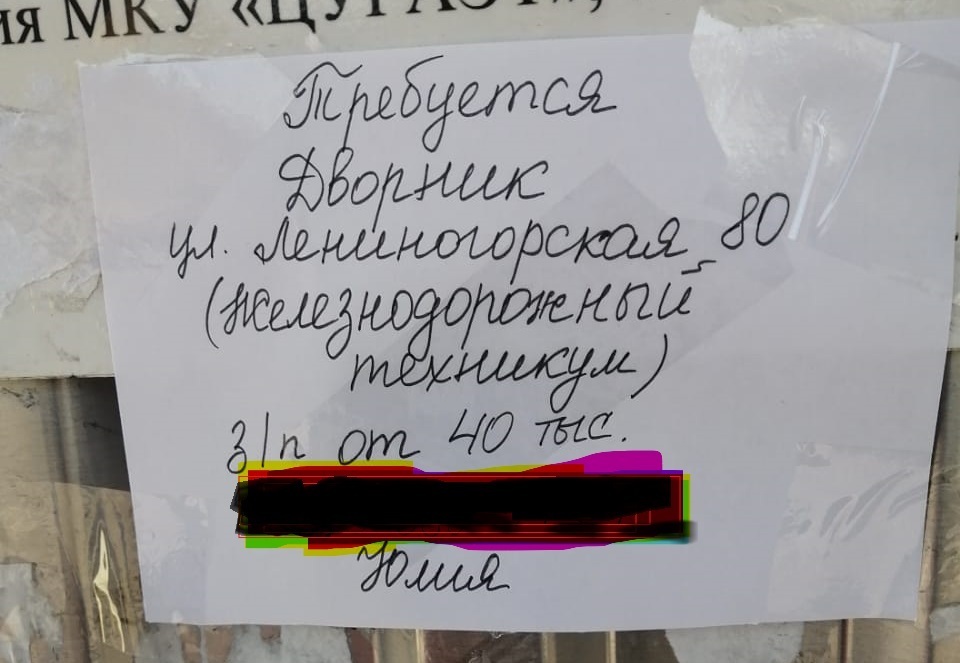 МКУ
Требуется
Дворник
ул. Лениногорская 80
(Железнодорожный
техникум)
з/п от 40 тыс.
Юлия